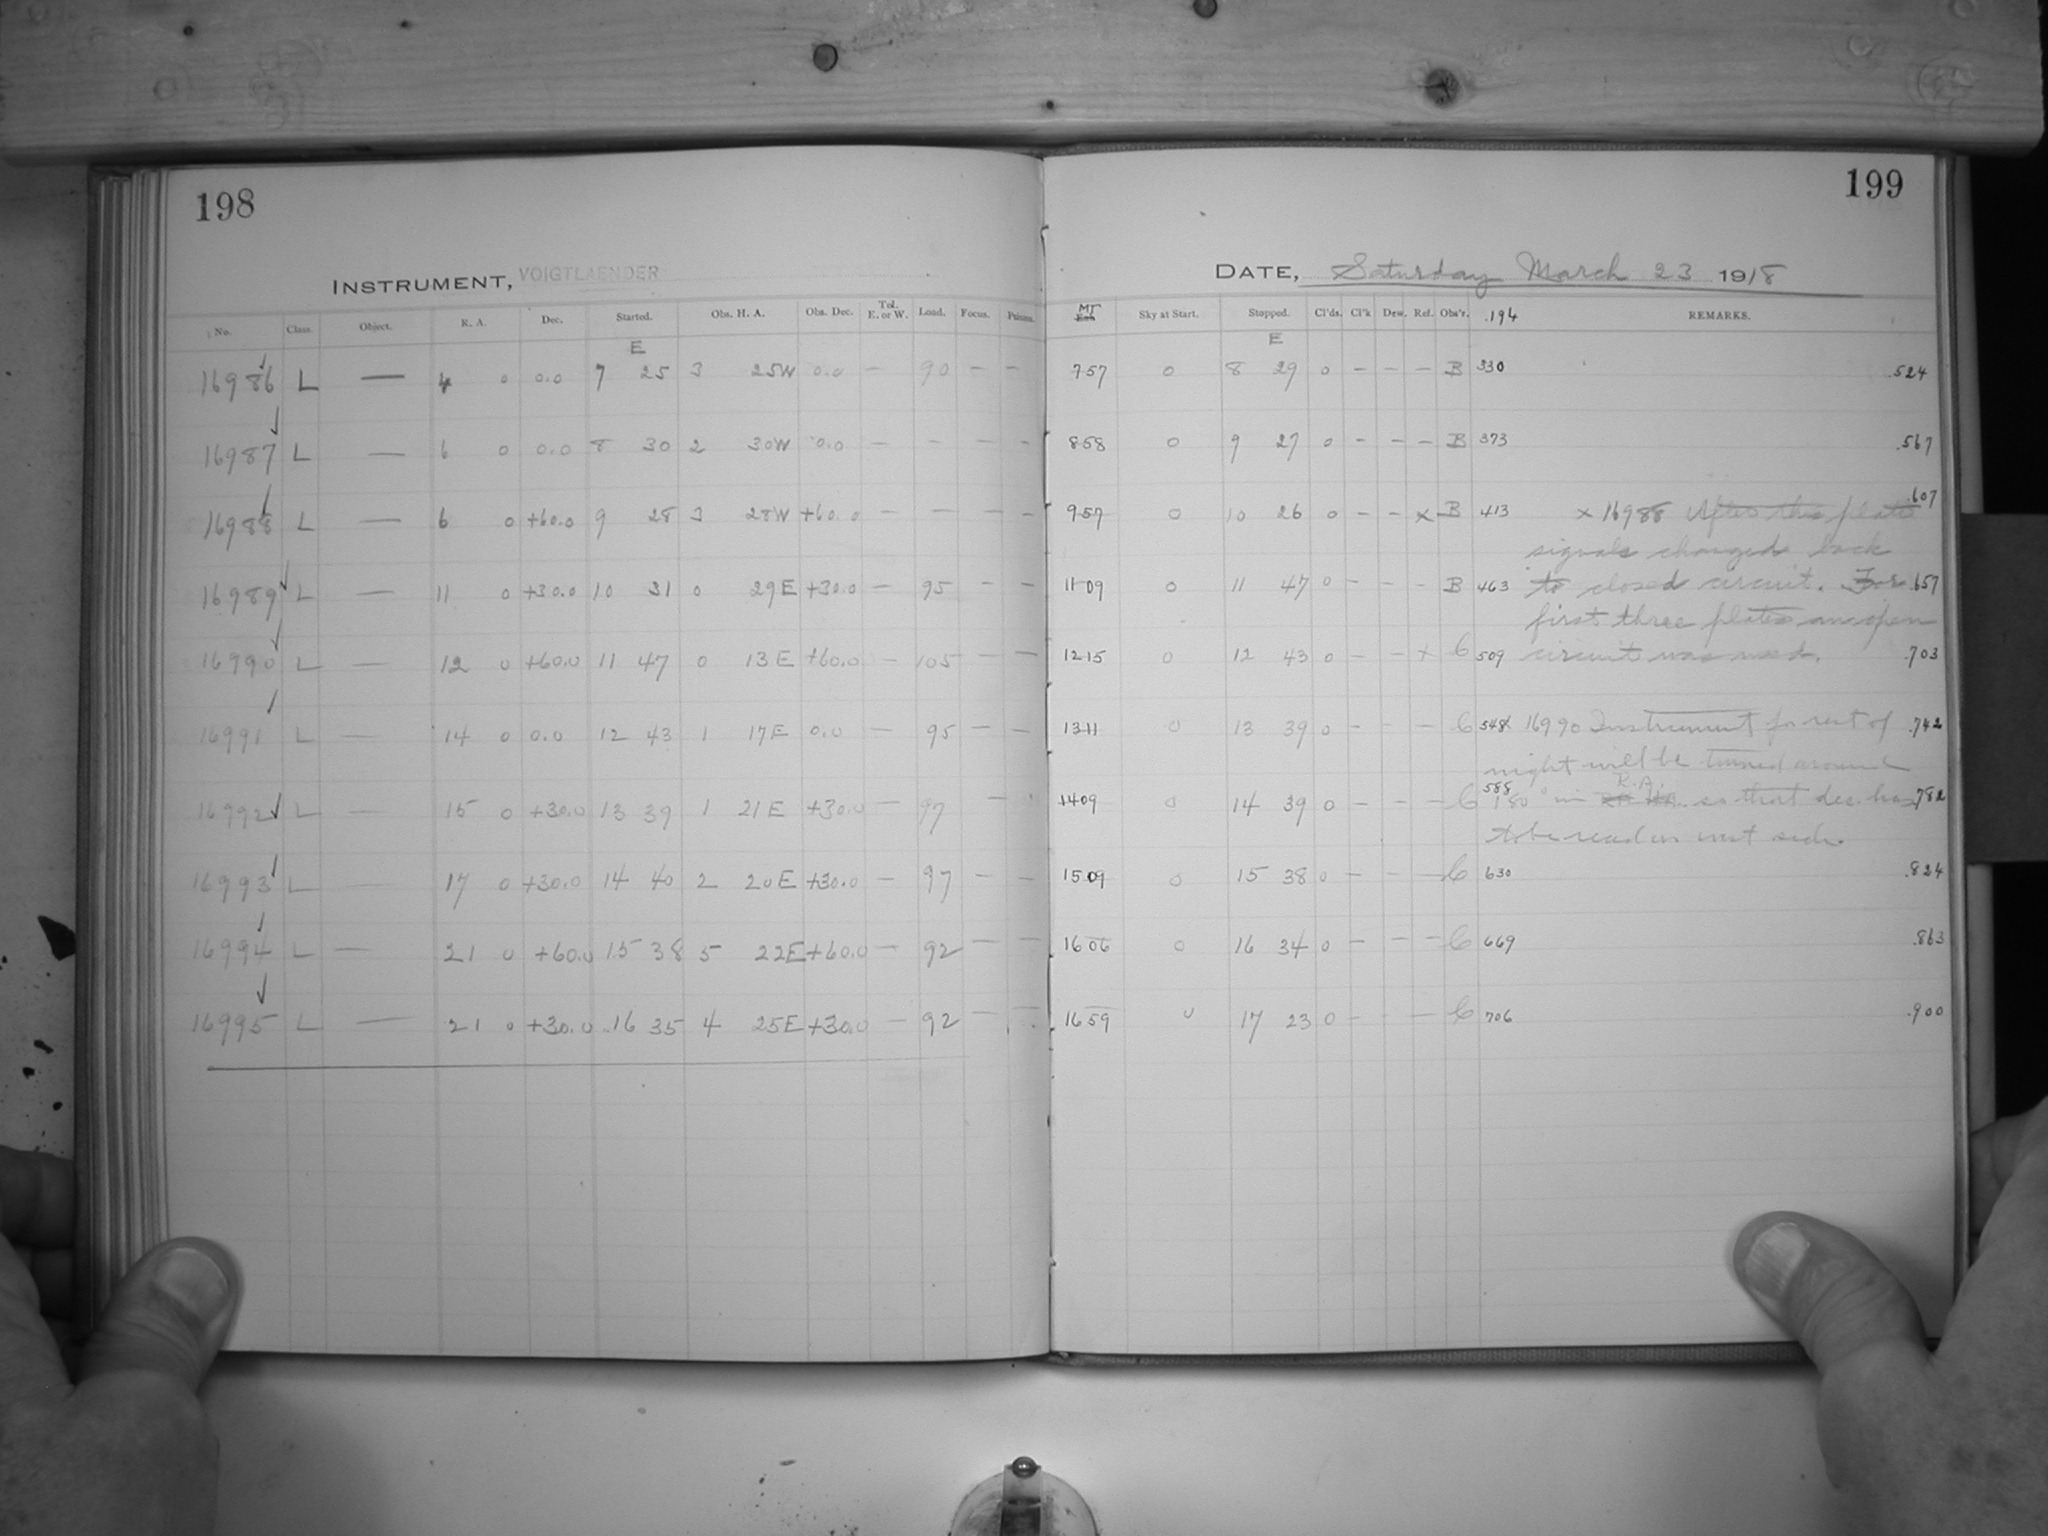 198
INSTRUMENT, VOIGTLAENDER
No. Class. Object. R. A. Dec. Started. Obs. H. A. Obs. Dec. Tel. E. or W. Load. Focus.
E
16986 L — 4 0 0.0 7 25 3 25W 0.0 — 90 — —
16987 L — 6 0 0.0 8 30 2 30W 0.0 — — — —
16988 L — 6 0 +60.0 9 28 3 28W +60.0 — — — —
16989 L — 11 0 +30.0 10 31 0 29E +30.0 — 95 — —
16990 L — 12 0 +60.0 11 47 0 13E +60.0 — 105 — —
16991 L — 14 0 0.0 12 43 1 17E 0.0 — 95 — —
16992 L — 15 0 +30.0 13 39 1 21E +30.0 — 97 —
16993 L — 17 0 +30.0 14 40 2 20E +30.0 — 97 — —
16994 L — 21 0 +60.0 15 38 5 22E +60.0 — 92 — —
16995 L — 21 0 +30.0 16 35 4 25E +30.0 — 92 — —
199
DATE, Saturday March 23 1918
MT Sky at Start. Stopped. Cl'ds. Cl'k Dew. Ref. Obs'r. .194 REMARKS.
E
7 57 0 8 29 0 — — — B 330 .524
8 58 0 9 27 0 — — — B 373 .567
9 57 0 10 26 0 — — x B 413 x 16988 After this plate .607
signals changed back
11 09 0 11 47 0 — — — B 463 to closed circuit. For .657
first three plates an open
12 15 0 12 43 0 — — x C 509 circuit was used. .703
13 11 0 13 39 0 — — — C 548 x 16990 Instrument for rest of .742
night will be turned around
R.A.
14 09 0 14 39 0 — — — C 588 180° in so that dec. has .782
to be read on west side.
15 09 0 15 38 0 — — — C 630 .824
16 06 0 16 34 0 — — — C 669 .863
16 59 0 17 23 0 — — — C 706 .900